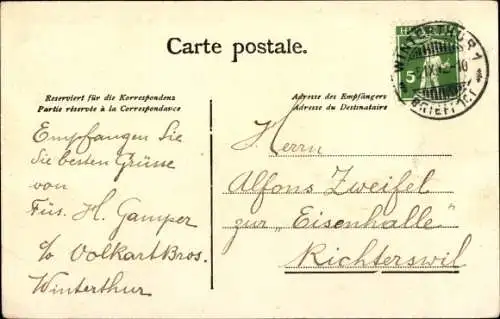 Carte postale.
Reserviert für die Korrespondenz
Partie réservée à la Correspondance
Adresse des Empfängers
Adresse du Destinataire
WINTERTHUR 1
BRIEF
5
Empfangen Sie
Sie besten Grüsse
von
Füs. H. Gamper
c/o Volkart Bros.
Winterthur
Herrn
Alfons Zweifel
zur „Eisenhalle"
Richterswil